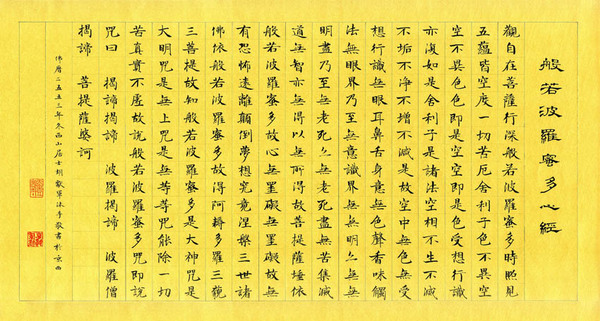 般若波羅蜜多心經
觀自在菩薩行深般若波羅蜜多時照見
五蘊皆空度一切苦厄舍利子色不異空
空不異色色即是空空即是色受想行識
亦復如是舍利子是諸法空相不生不滅
不垢不淨不增不減是故空中無色無受
想行識無眼耳鼻舌身意無色聲香味觸
法無眼界乃至無意識界無無明亦無無
明盡乃至無老死亦無老死盡無苦集滅
道無智亦無得以無所得故菩提薩埵依
般若波羅蜜多故心無罣礙無罣礙故無
有恐怖遠離顛倒夢想究竟涅槃三世諸
佛依般若波羅蜜多故得阿耨多羅三藐
三菩提故知般若波羅蜜多是大神咒是
大明咒是無上咒是無等等咒能除一切
苦真實不虛故說般若波羅蜜多咒即說
咒曰 揭諦揭諦 波羅揭諦 波羅僧
揭諦 菩提薩婆訶
佛曆二五五三年冬西山居士胡軍沐手敬書於京西